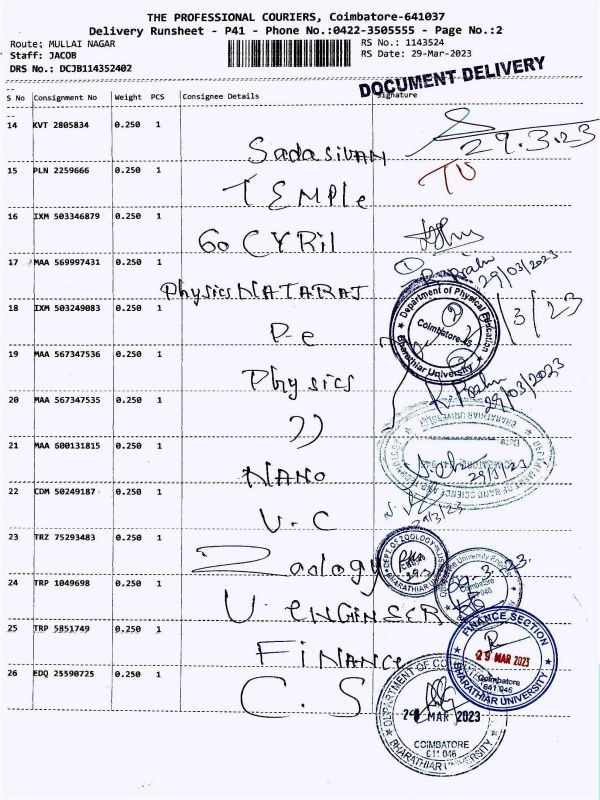 THE PROFESSIONAL COURIERS, Coimbatore-641037
Delivery Runsheet - P41 - Phone No.:0422-3505555 - Page No.:2
Route: MULLAI NAGAR RS No.: 1143524
Staff: JACOB RS Date: 29-Mar-2023
DRS No.: DCJB114352402
DOCUMENT DELIVERY
S No Consignment No Weight PCS Consignee Details Signature
14 KVT 2805834 0.250 1 Sadasivan 29.3.23
15 PLN 2259666 0.250 1 TEMPle
16 IXM 503346879 0.250 1 Go CYRil
17 MAA 569997431 0.250 1 Physics NATARAJ 29/03/2023
18 IXM 503249083 0.250 1 P-e
Department of Physical Education
Coimbatore-46
Bharathiar University
19 MAA 567347536 0.250 1 Physics 29/03/2023
20 MAA 567347535 0.250 1 ))
21 MAA 600131815 0.250 1 NANO
DEPARTMENT OF NANO SCIENCE AND TECHNOLOGY
BHARATHIAR UNIVERSITY
22 CDM 50249187 0.250 1 V.C 29/3/23
23 TRZ 75293483 0.250 1 Zoology
DEPT. OF ZOOLOGY
BHARATHIAR
24 TRP 1049698 0.250 1 U. ENGINSER
25 TRP 5851749 0.250 1 FiNANCe
FINANCE SECTION
29 MAR 2023
Coimbatore
641 046
BHARATHIAR UNIVERSITY
26 EDQ 25590725 0.250 1 C.S
DEPARTMENT OF
29 MAR 2023
COIMBATORE
641 046
BHARATHIAR UNIVERSITY